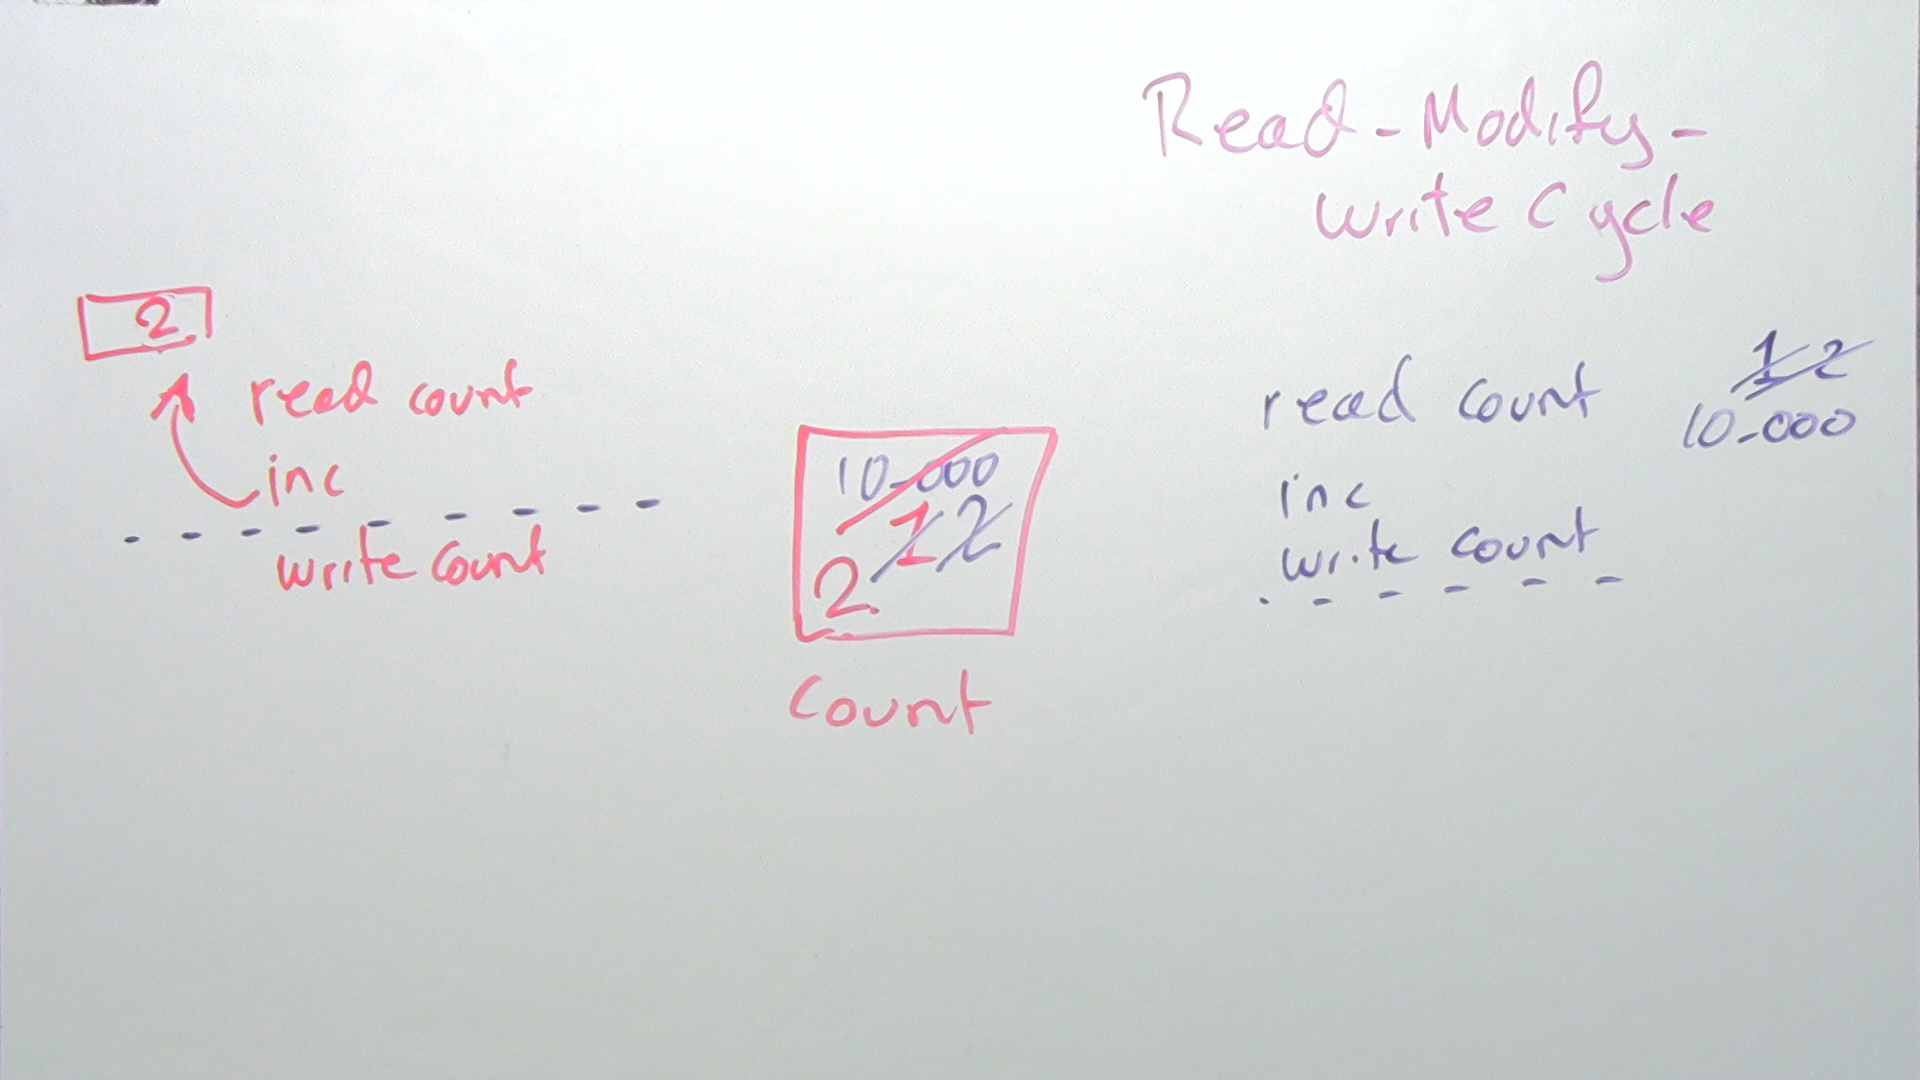 Read-Modify-
Write Cycle
2
read count
inc
write count
10-000
1 2
2
Count
read count
1 2
10-000
inc
write count